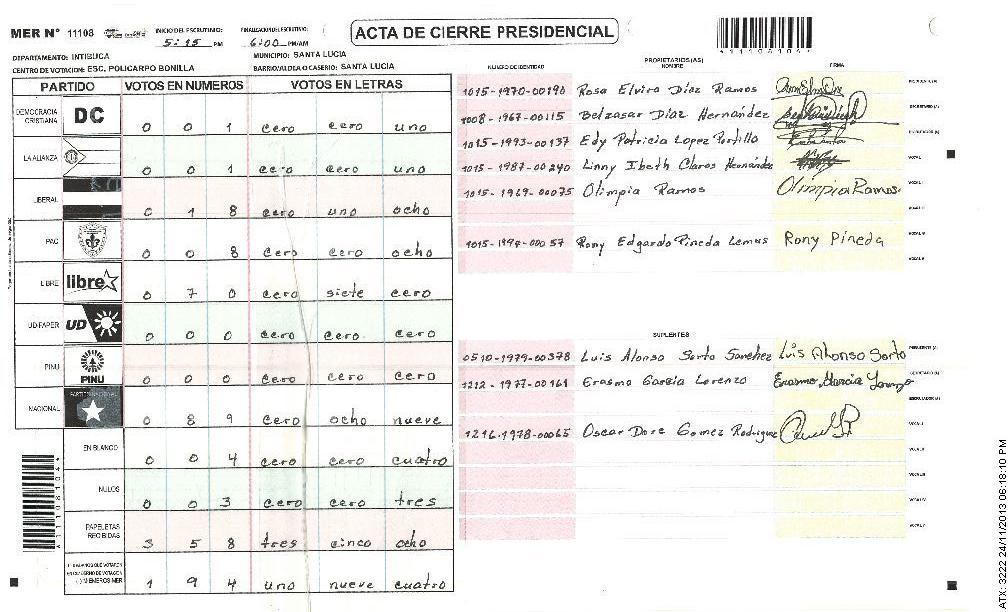 MER N° 11108
INICIO DEL ESCRUTINIO: 5:15 PM
FINALIZACION DEL ESCRUTINIO: 6:00 PM/AM
ACTA DE CIERRE PRESIDENCIAL
DEPARTAMENTO: INTIBUCA
MUNICIPIO: SANTA LUCIA
CENTRO DE VOTACION: ESC. POLICARPO BONILLA
BARRIO/ALDEA O CASERIO: SANTA LUCIA
PARTIDO VOTOS EN NUMEROS VOTOS EN LETRAS
DEMOCRACIA CRISTIANA DC 0 0 1 cero cero uno
LA ALIANZA 0 0 1 cero cero uno
LIBERAL 0 1 8 cero uno ocho
PAC 0 0 8 cero cero ocho
LIBRE libre 0 7 0 cero siete cero
UD/FAPER UD 0 0 0 cero cero cero
PINU PINU 0 0 0 cero cero cero
NACIONAL 0 8 9 cero ocho nueve
EN BLANCO 0 0 4 cero cero cuatro
NULOS 0 0 3 cero cero tres
PAPELETAS RECIBIDAS 3 5 8 tres cinco ocho
1 9 4 uno nueve cuatro
NUMERO DE IDENTIDAD
PROPIETARIOS(AS)
NOMBRE
FIRMA
1015-1970-00190 Rosa Elvira Diaz Ramos
1008-1967-00115 Belzasar Diaz Hernandez
1015-1993-00137 Edy Patricia Lopez Portillo
1015-1987-00240 Linny Ibeth Claros Hernandez
1015-1969-00075 Olimpia Ramos Olimpia Ramos.
1015-1994-00057 Rony Edgardo Pineda Lemus Rony Pineda
SUPLENTES
0510-1979-00378 Luis Alonso Sorto Sanchez Luis Alonso Sorto
1212-1977-00161 Erasmo Garcia Lorenzo Erasmo Garcia
1216-1978-00065 Oscar Dore Gomez Rodriguez
ATX: 3222 24/11/2013 06:18:10 PM